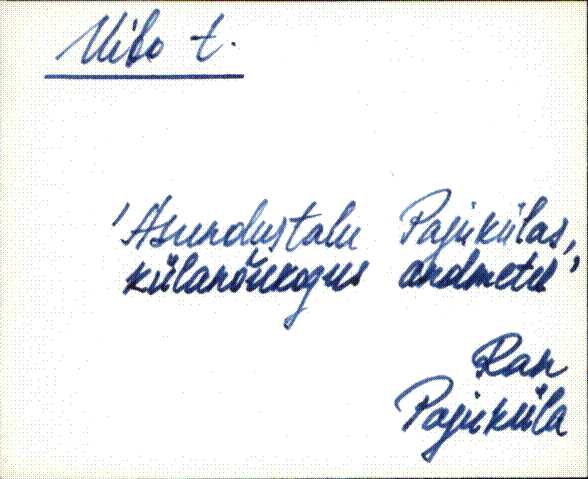 Uibo t.
'Asundustalu Pajukülas,
külanõukogus andmetel'
Ran
Pajuküla